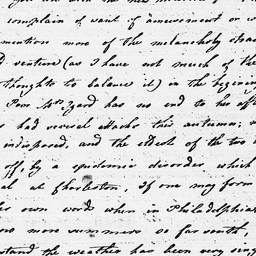 complain of want of amusement or
mention more of the melancholy
venture (as I have not much of the
thoughts to balance it) in the beginning
Poor Mrs. Izard has no end to her
had several attacks this autumn;
indisposed, and the eldest of the two
off, by a epidemic disorder which
at Charleston, if one may form
own words when in Philadelphia
more summers so far south,
the weather has been very